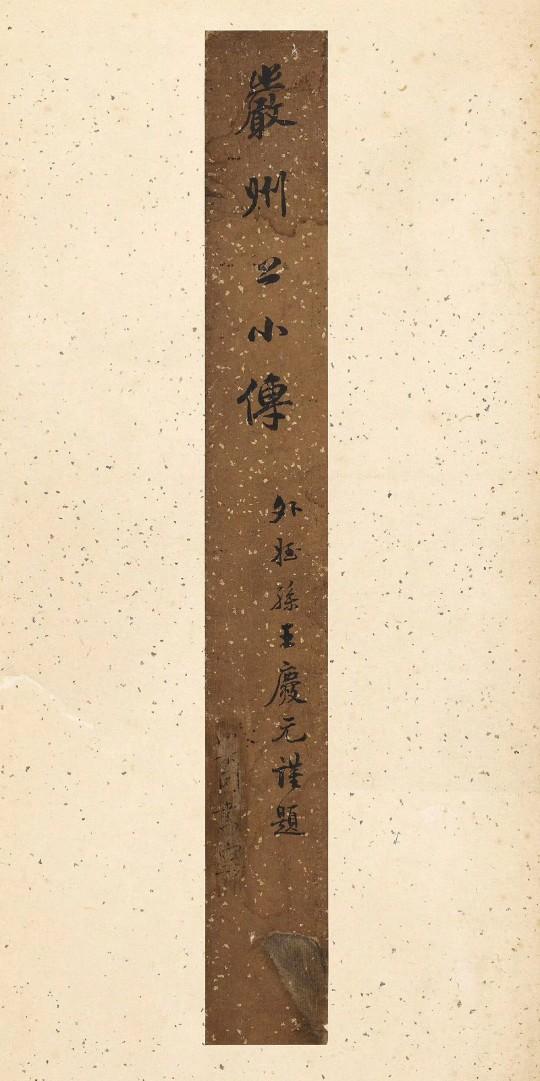 嚴州公小傳
外姪孫王慶元謹題